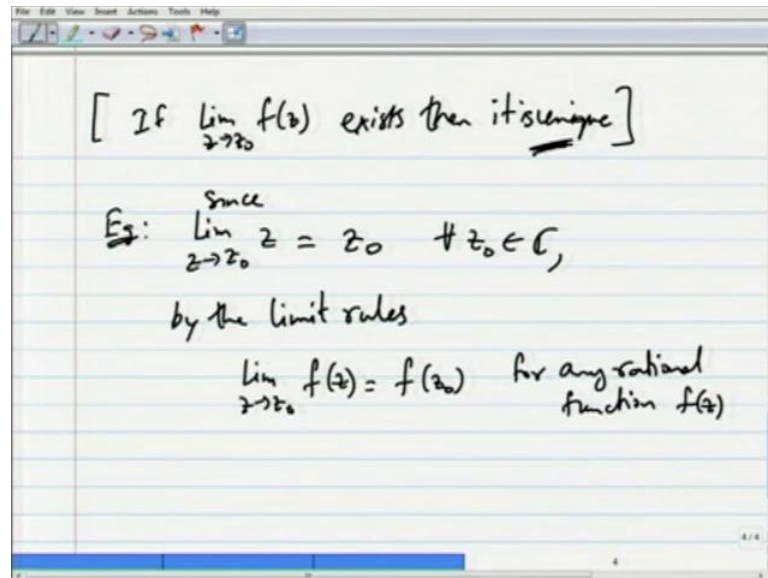 File Edit View Insert Actions Tools Help
[ If lim f(z) exists then it is unique ]
z→z₀
since
Eg: lim z = z₀ ∀ z₀ ∈ ℂ,
z→z₀
by the limit rules
lim f(z) = f(z₀) for any rational
z→z₀ function f(z)
4/4
4